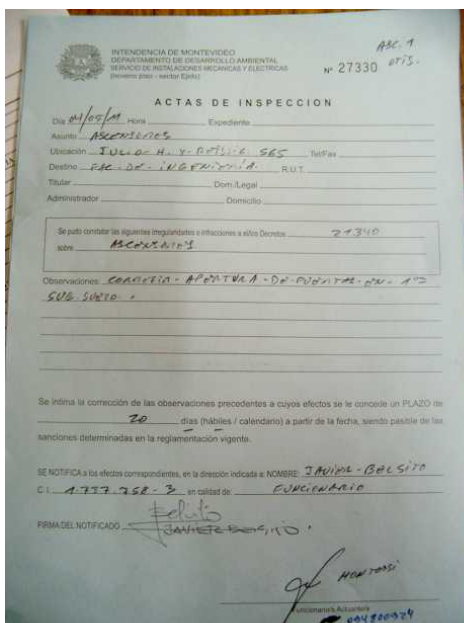 INTENDENCIA DE MONTEVIDEO
DEPARTAMENTO DE DESARROLLO AMBIENTAL
SERVICIO DE INSTALACIONES MECANICAS Y ELECTRICAS
(noveno piso - sector Ejido)
ASC. 1
OTIS.
Nº 27330
ACTAS DE INSPECCION
Día 04/05/11 Hora Expediente
Asunto ASCENSORES
Ubicación JULIO - H. Y - REISSIG 565 Tel/Fax
Destino FAC - DE - INGENIERIA R.U.T.
Titular Dom./Legal
Administrador Domicilio
Se pudo constatar las siguientes irregularidades o infracciones a el/los Decretos 21340
sobre ASCENSORES
Observaciones CORREGIR - APERTURA - DE - PUERTAS - EN - 1er
SUB. SUELO.
Se intima la corrección de las observaciones precedentes a cuyos efectos se le concede un PLAZO de
20 días (hábiles / calendário) a partir de la fecha, siendo pasible de las
sanciones determinadas en la reglamentación vigente.
SE NOTIFICA a los efectos correspondientes, en la dirección indicada a: NOMBRE: JAVIER - BELSITO
C.I. 1.757.758 - 3 en calidad de: FUNCIONARIO
Belsito
FIRMA DEL NOTIFICADO JAVIER BELSITO.
Funcionario/s Actuante/s
094200924